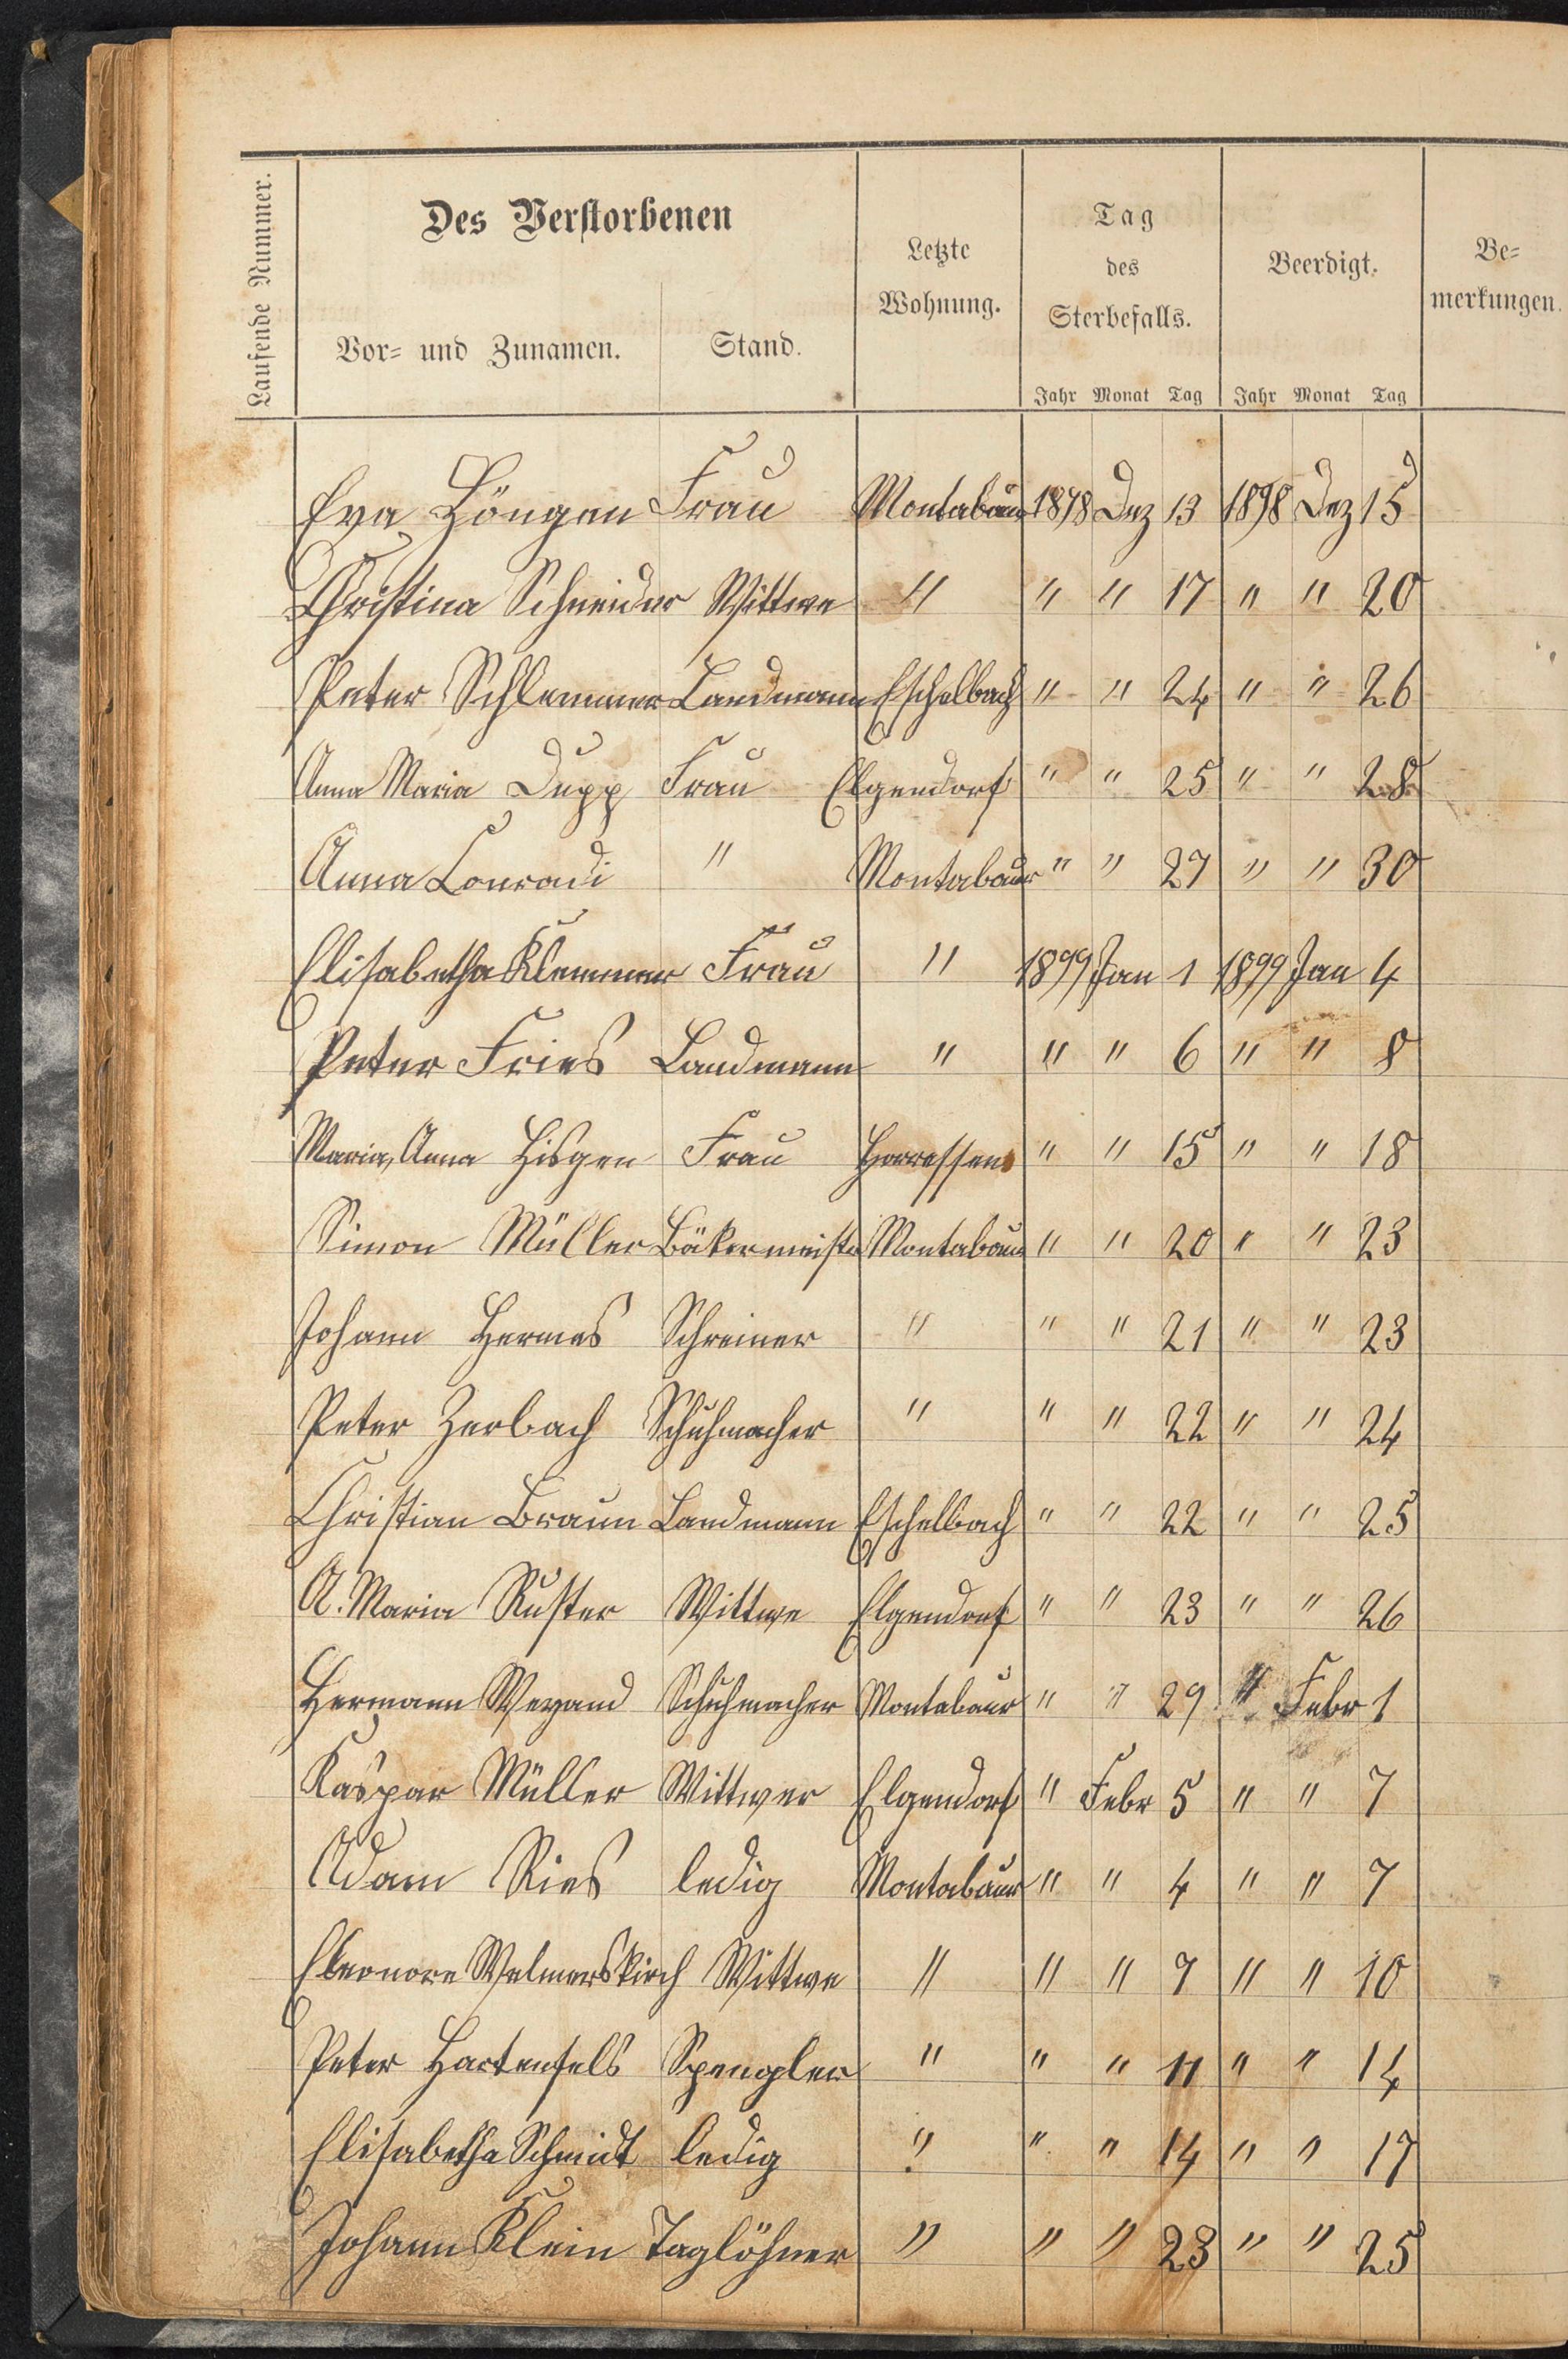 Laufende Nummer.
Des Verstorbenen
Vor- und Zunamen. Stand.
Letzte
Wohnung.
Tag
des
Sterbefalls.
Jahr Monat Tag
Beerdigt.
Jahr Monat Tag
Be-
merkungen.
Eva Frau Montabaur 1898 Dez 13 1898 Dez 15
Christina Schneider Wittwe " " " 17 " " 20
Peter Schlemmer Landmann Eschelbach " " 24 " " 26
Anna Maria Dupp Frau Elgendorf " " 25 " " 28
Anna Conradi " Montabaur " " 27 " " 30
Elisabetha Klemmer Frau " 1899 Jan 1 1899 Jan 4
Peter Fries Landmann " " " 6 " " 8
Maria Anna Hisgen Frau Horressen " " 15 " " 18
Simon Müller Bäkermeister Montabaur " " 20 " " 23
Johann Hermes Schreiner " " " 21 " " 23
Peter Zerbach Schuhmacher " " " 22 " " 24
Christian Braun Landmann Eschelbach " " 22 " " 25
A. Maria Ruster Wittwe Elgendorf " " 23 " " 26
Hermann Weyand Schuhmacher Montabaur " " 29 " Febr 1
Kaspar Müller Wittwer Elgendorf " Febr 5 " " 7
Adam Ries ledig Montabaur " " 4 " " 7
Eleonore Welmerskirch Wittwe " " " 7 " " 10
Peter Hartenfels Spengler " " " 11 " " 14
Elisabetha Schmidt ledig " " " 14 " " 17
Johann Klein Taglöhner " " " 23 " " 25